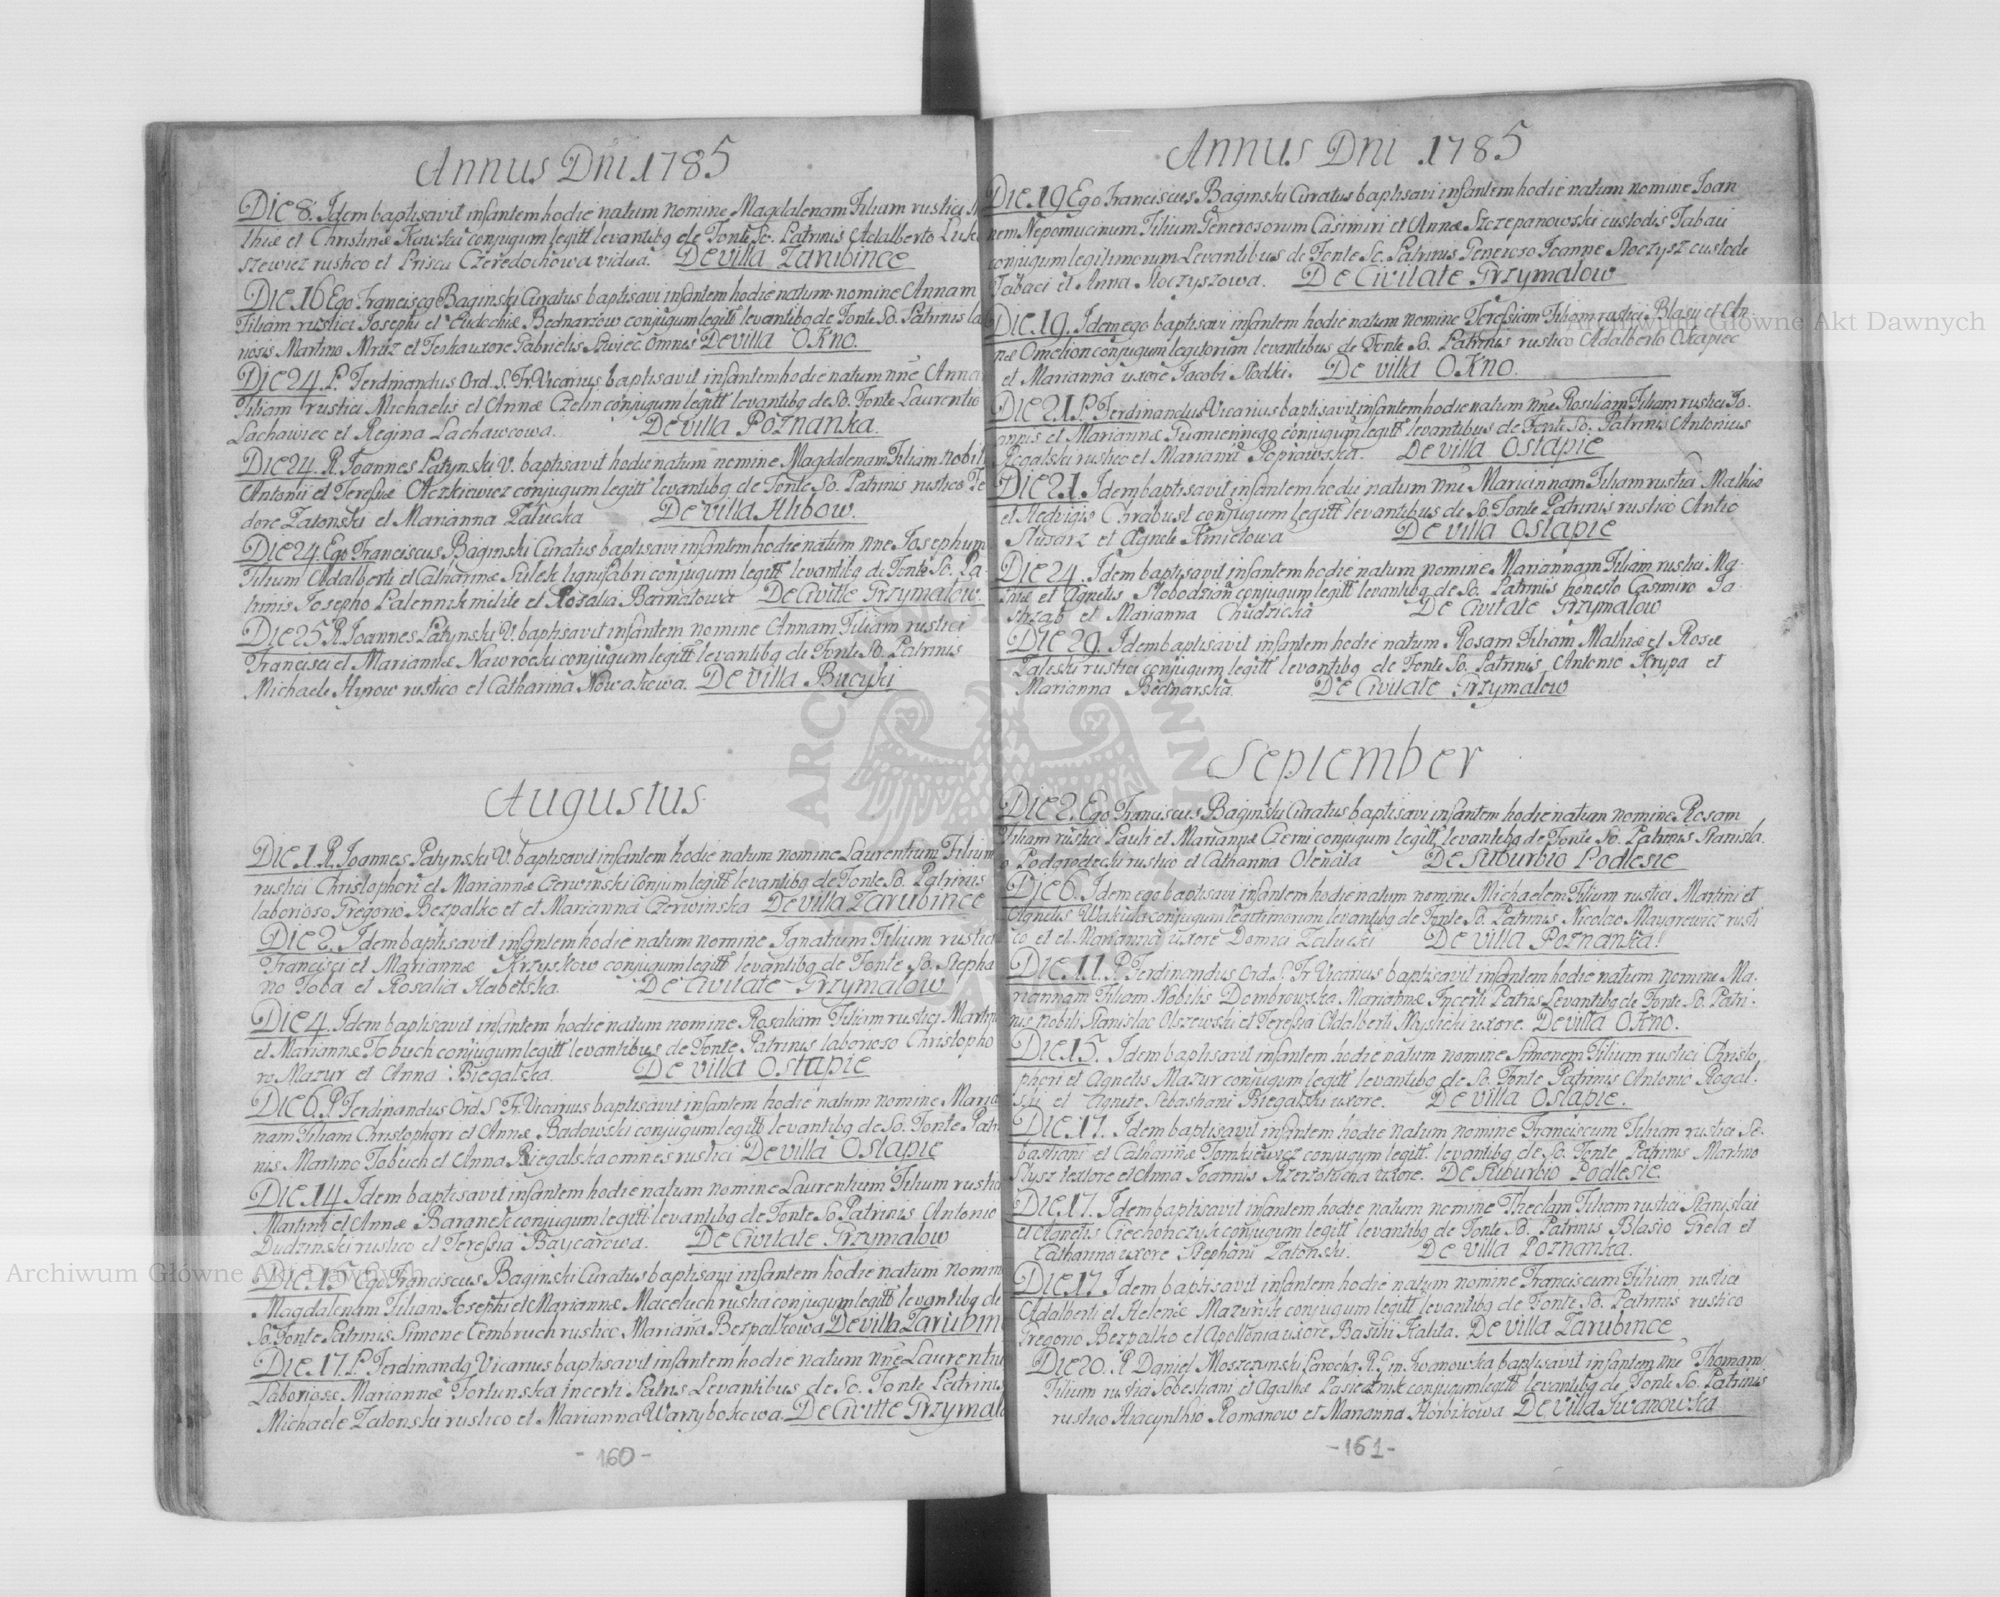 Annus Dni 1785
Die 8. Idem baptisavit infantem hodie natum nomine Magdalenam Filiam rustici
thiæ et Christinæ conjugum legitt levantibq de Fonte So. Patrinis Adalberto
szewicz rustico et Prisca Czeredochowa vidua. De villa Zarubince
Die 16 Ego Franciscq Baginski Curatus baptisavi infantem hodie natum nomine Annam
Filiam rustici Josephi et Eudochiæ Bednarzow conjugum legitt levantibq de Fonte So. Patrinis la
riosis Martino Mruz et uxore Gabrielis Szwiec omnes De villa Okno.
Die 24 P. Ferdinandus Ord. S. Fr. Vicarius baptisavit infantem hodie natum nne Anna
Filiam rustici Michaelis et Annæ Czelin conjugum legitt levantibq de So. Fonte Laurentio
Lachawiec et Regina Lachawcowa. De villa Poznanka.
Die 24. R. Joannes Patynski V. baptisavit hodie natum nomine Magdalenam Filiam nobil
Antonii et Teressiæ conjugum legitt levantibq de Fonte So. Patrinis rustico
dore Zatonski et Marianna Zalucka De villa Hlibow.
Die 24. Ego Franciscus Baginski Curatus baptisavi infantem hodie natum nne Josephum
Filium Adalberti et Catharinæ Sulek lignifabri conjugum legitt levantibq de Fonte So. Pa-
trinis Josepho Palennik milite et Rosalia Barnatowa De Civitte Grzymalow
Die 25 R. Joannes Patynski V. baptisavit infantem nomine Annam Filiam rustici
Francisci et Mariannæ Nawrocki conjugum legitt levantibq de Fonte So. Patrinis
Michaele Hynow rustico et Catharina Nowakowa. De villa Bucyki
Augustus
Die 1. R. Joannes Patynski V. baptisavit infantem hodie natum nomine Laurentium Filium
rustici Christophori et Mariannæ Czerwinski Conjum legitt levantibq de Fonte So. Patrinis
laborioso Gregorio Bezpalko et et Marianna Czerwinska De villa Zarubince
Die 2. Idem baptisavit infantem hodie natum nomine Ignatium Filium rustici
Francisci et Mariannæ Krzyskow conjugum legitt levantibq de Fonte So. Stepha
no Foba et Rosalia Habelska. De Civitate Grzymalow
Die 4. Idem baptisavit infantem hodie natum nomine Rosaliam Filiam rustici Martin
et Mariannæ Tobuch conjugum legitt levantibus de Fonte Patrinis laborioso Christopho
ro Mazur et Anna Biegalska. De villa Ostapie
Die 6. P. Ferdinandus Ord S Fr. Vicarius baptisavit infantem hodie natum nomine Maria
nam Filiam Christophori et Annæ Badowski conjugum legitt levantibq de So. Fonte Patri
nis Martino Tobuch et Anna Biegalska omnes rustici De villa Ostapie
Die 14 Idem baptisavit infantem hodie natum nomine Laurentium Filium rustici
Martini et Annæ Baranek conjugum legitt levantibq de Fonte So Patrinis Antonio
Dudzinski rustico et Teressia Baycarowa. De Civitate Grzymalow
Die 15 Ego Franciscus Baginski Curatus baptisavi infantem hodie natum Nomin
Magdalenam Filiam Josephi et Mariannæ Maceluch rustici conjugum legitt levantibq de
So. Fonte Patrinis Simone Cembruch rustico Mariana Bezpalkowa De villa Zarubin
Die 17. P. Ferdinandq Vicarius baptisavit infantem hodie natum nne Laurentiu
Laboriosæ Mariannæ Fortunska incerti Patris Levantibus de So. Fonte Patrinis
Michaele Zatonski rustico et Marianna Warzybokowa. De Civitte Grzymalo
- 160 -
Annus Dni 1785
Die 19 Ego Franciscus Baginski Curatus baptisavi infantem hodie natum nomine Joan
nem Nepomucinum Filium Generosorum Casimiri et Annæ Szczepanowski custodis Tabaci
conjugum legitimorum Levantibus de Fonte So. Patrinis Generoso Joanne Stoczysz custode
Tabaci et Anna Stoczyszowa. De Civitate Grzymalow
Die 19. Idem ego baptisavi infantem hodie natum nomine Teressiam Filiam rustici Blasii et An
næ Omelion conjugum legitorum levantibus de Fonte So. Patrinis rustico Adalberto Ostapiec
et Marianna uxore Jacobi Slodki. De villa Okno.
Die 21. P. Ferdinandus Vicarius baptisavit infantem hodie natum nne Rosiliam Filiam rustici Jo.
annis et Mariannæ Gumiennego conjugum legitt levantibus de Fonte So. Patrinis Antonius
Rogalski rustico et Marianna Poprawska. De villa Ostapie
Die 21. Idem baptisavit infantem hodie natum nne Mariannam Filiam rustici Mathiæ
et Hedvigis Chrabust conjugum legitt levantibus de So. Fonte Patrinis rustico Antio
Slusarz et Agnete Kmielowa De villa Ostapie
Die 24. Idem baptisavit infantem hodie natum nomine Mariannam Filiam rustici Ma-
et Agnetis Slobodzian conjugum legitt levantibq de So. Patrinis honesto Casmiro Ja-
strząb et Marianna Chudzicka De Civitate Grzymalow
Die 29. Idem baptisavit infantem hodie natum Rosam Filiam Mathiæ et Rosæ
Zaleski rustici conjugum legitt levantibq de Fonte So. Patrinis Antonio Krypa et
Marianna Bednarska. De Civitate Grzymalow
September
Die 2. Ego Franciscus Baginski Curatus baptisavi infantem hodie natum nomine Rosam
Filiam rustici Pauli et Mariannæ Czerni conjugum legitt levantibq de Fonte So. Patrinis Stanisla
o Podgrodecki rustico et Catharina Olenata De Suburbio Podlesie
Die 6. Idem ego baptisavi infantem hodie natum nomine Michaelem Filium rustici Martini et
Agnetis Wakula conjugum legittimorum levantibq de Fonte So. Patrinis Nicolao Maygrewicz rusti
co et et Marianna uxore Domici Zalucki De villa Poznanka!
Die 11. P. Ferdinandus Ord. S. Fr. Vicarius baptisavit infantem hodie natum nomine Ma-
riannam Filiam Nobilis Dombrowska Mariannæ Incerti Patris Levantibq de Fonte So. Patri-
nis nobili Stanislao Olszewski et Teressia Adalberti Myslicki uxore. De villa Okno.
Die 15. Idem baptisavit infantem hodie natum nomine Simonem Filium rustici Christo
phori et Agnetis Mazur conjugum legitt levantibq de So. Fonte Patrinis Antonio Rogal-
ski et Agnete Sebastiani Biegalski uxore. De villa Ostapie.
Die 17. Idem baptisavit infantem hodie natum nomine Franciscum Filium rustici Se-
bastiani et Catharinæ Tomkiewicz conjugum legitt. levantibq de So. Fonte Patrinis Martino
Slysz textore et Anna Joannis uxore. De Suburbio Podlesie.
Die 17. Idem baptisavit infantem hodie natum nomine Theclam Filiam rustici Stanislai
et Agnetis Ciechonczyk conjugum legitt levantibq de Fonte So. Patrinis Blasio Grela et
Catharina uxore Stephani Zatonski. De villa Poznanka.
Die 17 Idem baptisavit infantem hodie natum nomine Franciscum Filium rustici
Adalberti et Helenæ Mazuryk conjugum legitt levantibq de Fonte So. Patrinis rustico
Gregorio Bezpalko et Apollonia uxore Basilii Kalita. De villa Zarubince
Die 20. P Daniel Moszczynski Parochq R. G. in Iwanowska baptisavit infantem nne Thomam
Filium rustici Sebestiani et Agathæ Pasiecznik conjugum legitt levantibq de Fonte So. Patrinis
rustico Hiacynthio Romanow et Marianna Horbikowa De villa Iwanowska
- 161 -
Archiwum Główne Akt Dawnych
Archiwum Główne Akt Dawnych